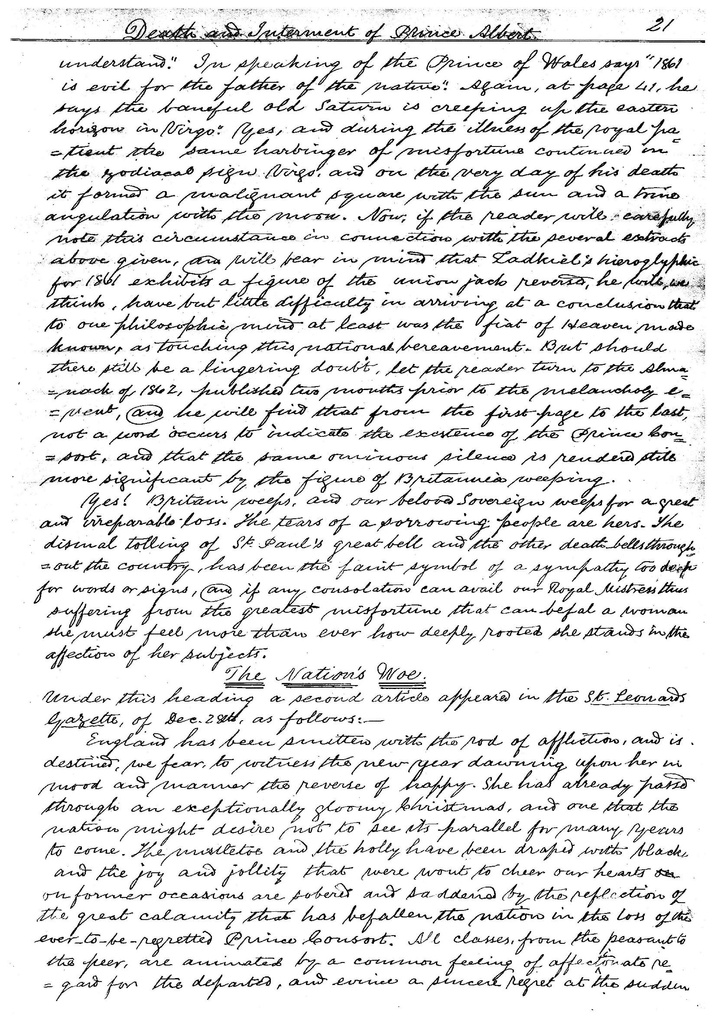 Death and Interment of Prince Albert. 21
understand." In speaking of the Prince of Wales says "1861
is evil for the father of the native". Again, at page 41, he
says the baneful old Saturn is creeping up the eastern
horizon in Virgo". Yes, and during the illness of the royal pa-
=tient the same harbinger of misfortune continued in
the zodiacal sign Virgo, and on the very day of his death
it formed a malignant square with the sun and a trine
angulation with the moon. Now, if the reader will carefully
note this circumstance in connection with the several extracts
above given, and will bear in mind that Zadkiel's hieroglyphic
for 1861 exhibits a figure of the union jack reversed, he will, we
think, have but little difficulty in arriving at a conclusion that
to one philosophic mind at least was the fiat of Heaven made
known, as touching this national bereavement. But should
there still be a lingering doubt, let the reader turn to the Alma-
=nack of 1862, published two months prior to the melancholy e-
=vent, and he will find that from the first page to the last
not a word occurs to indicate the existence of the Prince Con-
=sort, and that the same ominous silence is renderd still
more significant by the figure of Britannia weeping.
Yes! Britain weeps, and our belovd Sovereign weeps for a great
and irreparable loss. The tears of a sorrowing people are hers. The
dismal tolling of St. Paul's great bell and the other death-bells through-
=out the country, has been the faint symbol of a sympathy too deep
for words or signs, and if any consolation can avail our Royal Mistress thus
suffering from the greatest misfortune that can befal a woman
she must feel more than ever how deeply rooted she stands in the
affection of her subjects.
The Nation's Woe.
Under this heading a second article appeared in the St. Leonards
Gazette, of Dec. 28th, as follows:—
England has been smitten with the rod of affliction, and is
destined, we fear, to witness the new year dawning upon her in
mood and manner the reverse of happy. She has already passed
through an exceptionally gloomy Christmas, and one that the
nation might desire not to see its parallel for many years
to come. The mistletoe and the holly have been draped with black,
and the joy and jollity that were wont to cheer our hearts on
on former occasions are sobered and saddened by the reflection of
the great calamity that has befallen the nation in the loss of the
ever-to-be-regretted Prince Consort. All classes, from the peasant to
the peer, are animated by a common feeling of affectionate re-
=gard for the departed, and evince a sincere regret at the sudden